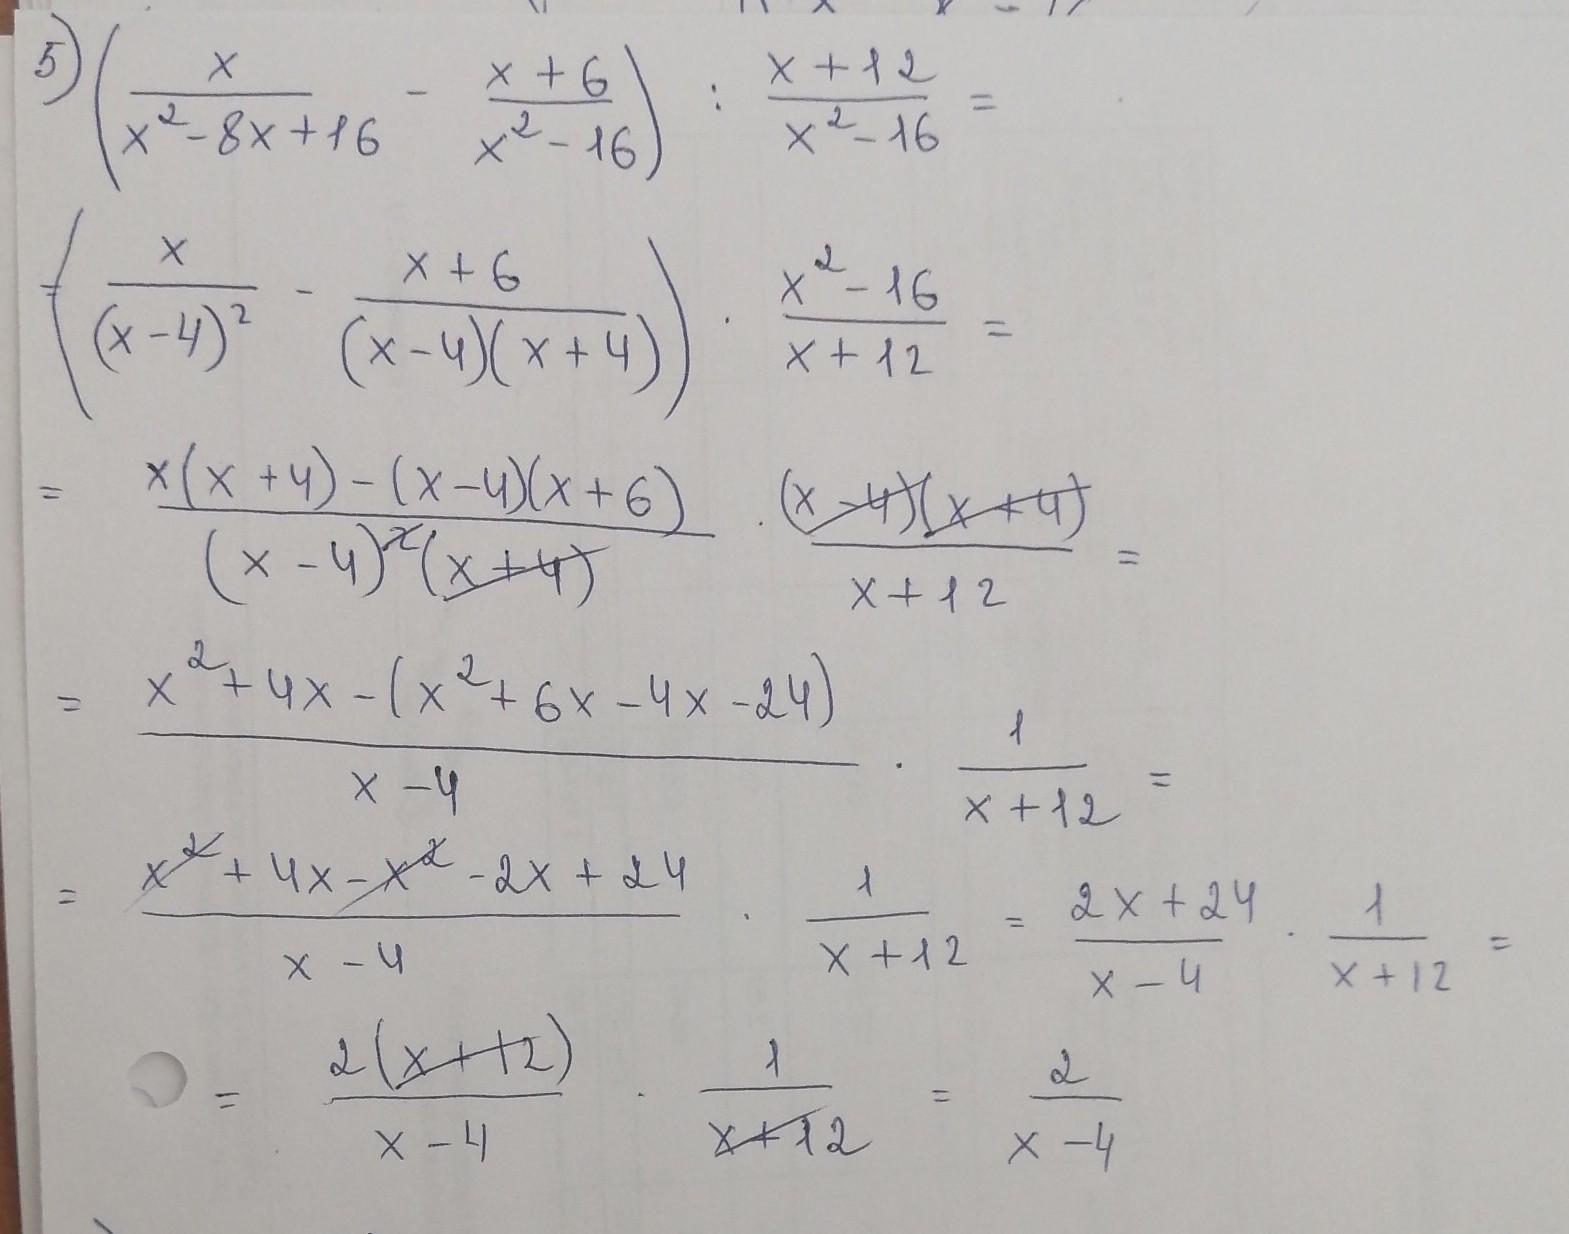 5) (x/(x²-8x+16) - (x+6)/(x²-16)) : (x+12)/(x²-16) =
= (x/(x-4)² - (x+6)/((x-4)(x+4))) · (x²-16)/(x+12) =
= (x(x+4)-(x-4)(x+6))/((x-4)²(x+4)) · ((x-4)(x+4))/(x+12) =
= (x²+4x-(x²+6x-4x-24))/(x-4) · 1/(x+12) =
= (x²+4x-x²-2x+24)/(x-4) · 1/(x+12) = (2x+24)/(x-4) · 1/(x+12) =
= (2(x+12))/(x-4) · 1/(x+12) = 2/(x-4)